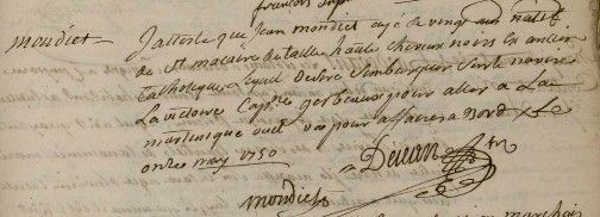 mondiet
J'atteste que Jean mondiet agé de vingt ans natif
de St macaire de taille haute cheveux noirs
Catholique lequel desire s'embarquer sur le navire
La victoire Cap.ne gesbeaux pour aller a La
martinique ou il va pour affaires a Bord Le
onze may 1750
mondiet